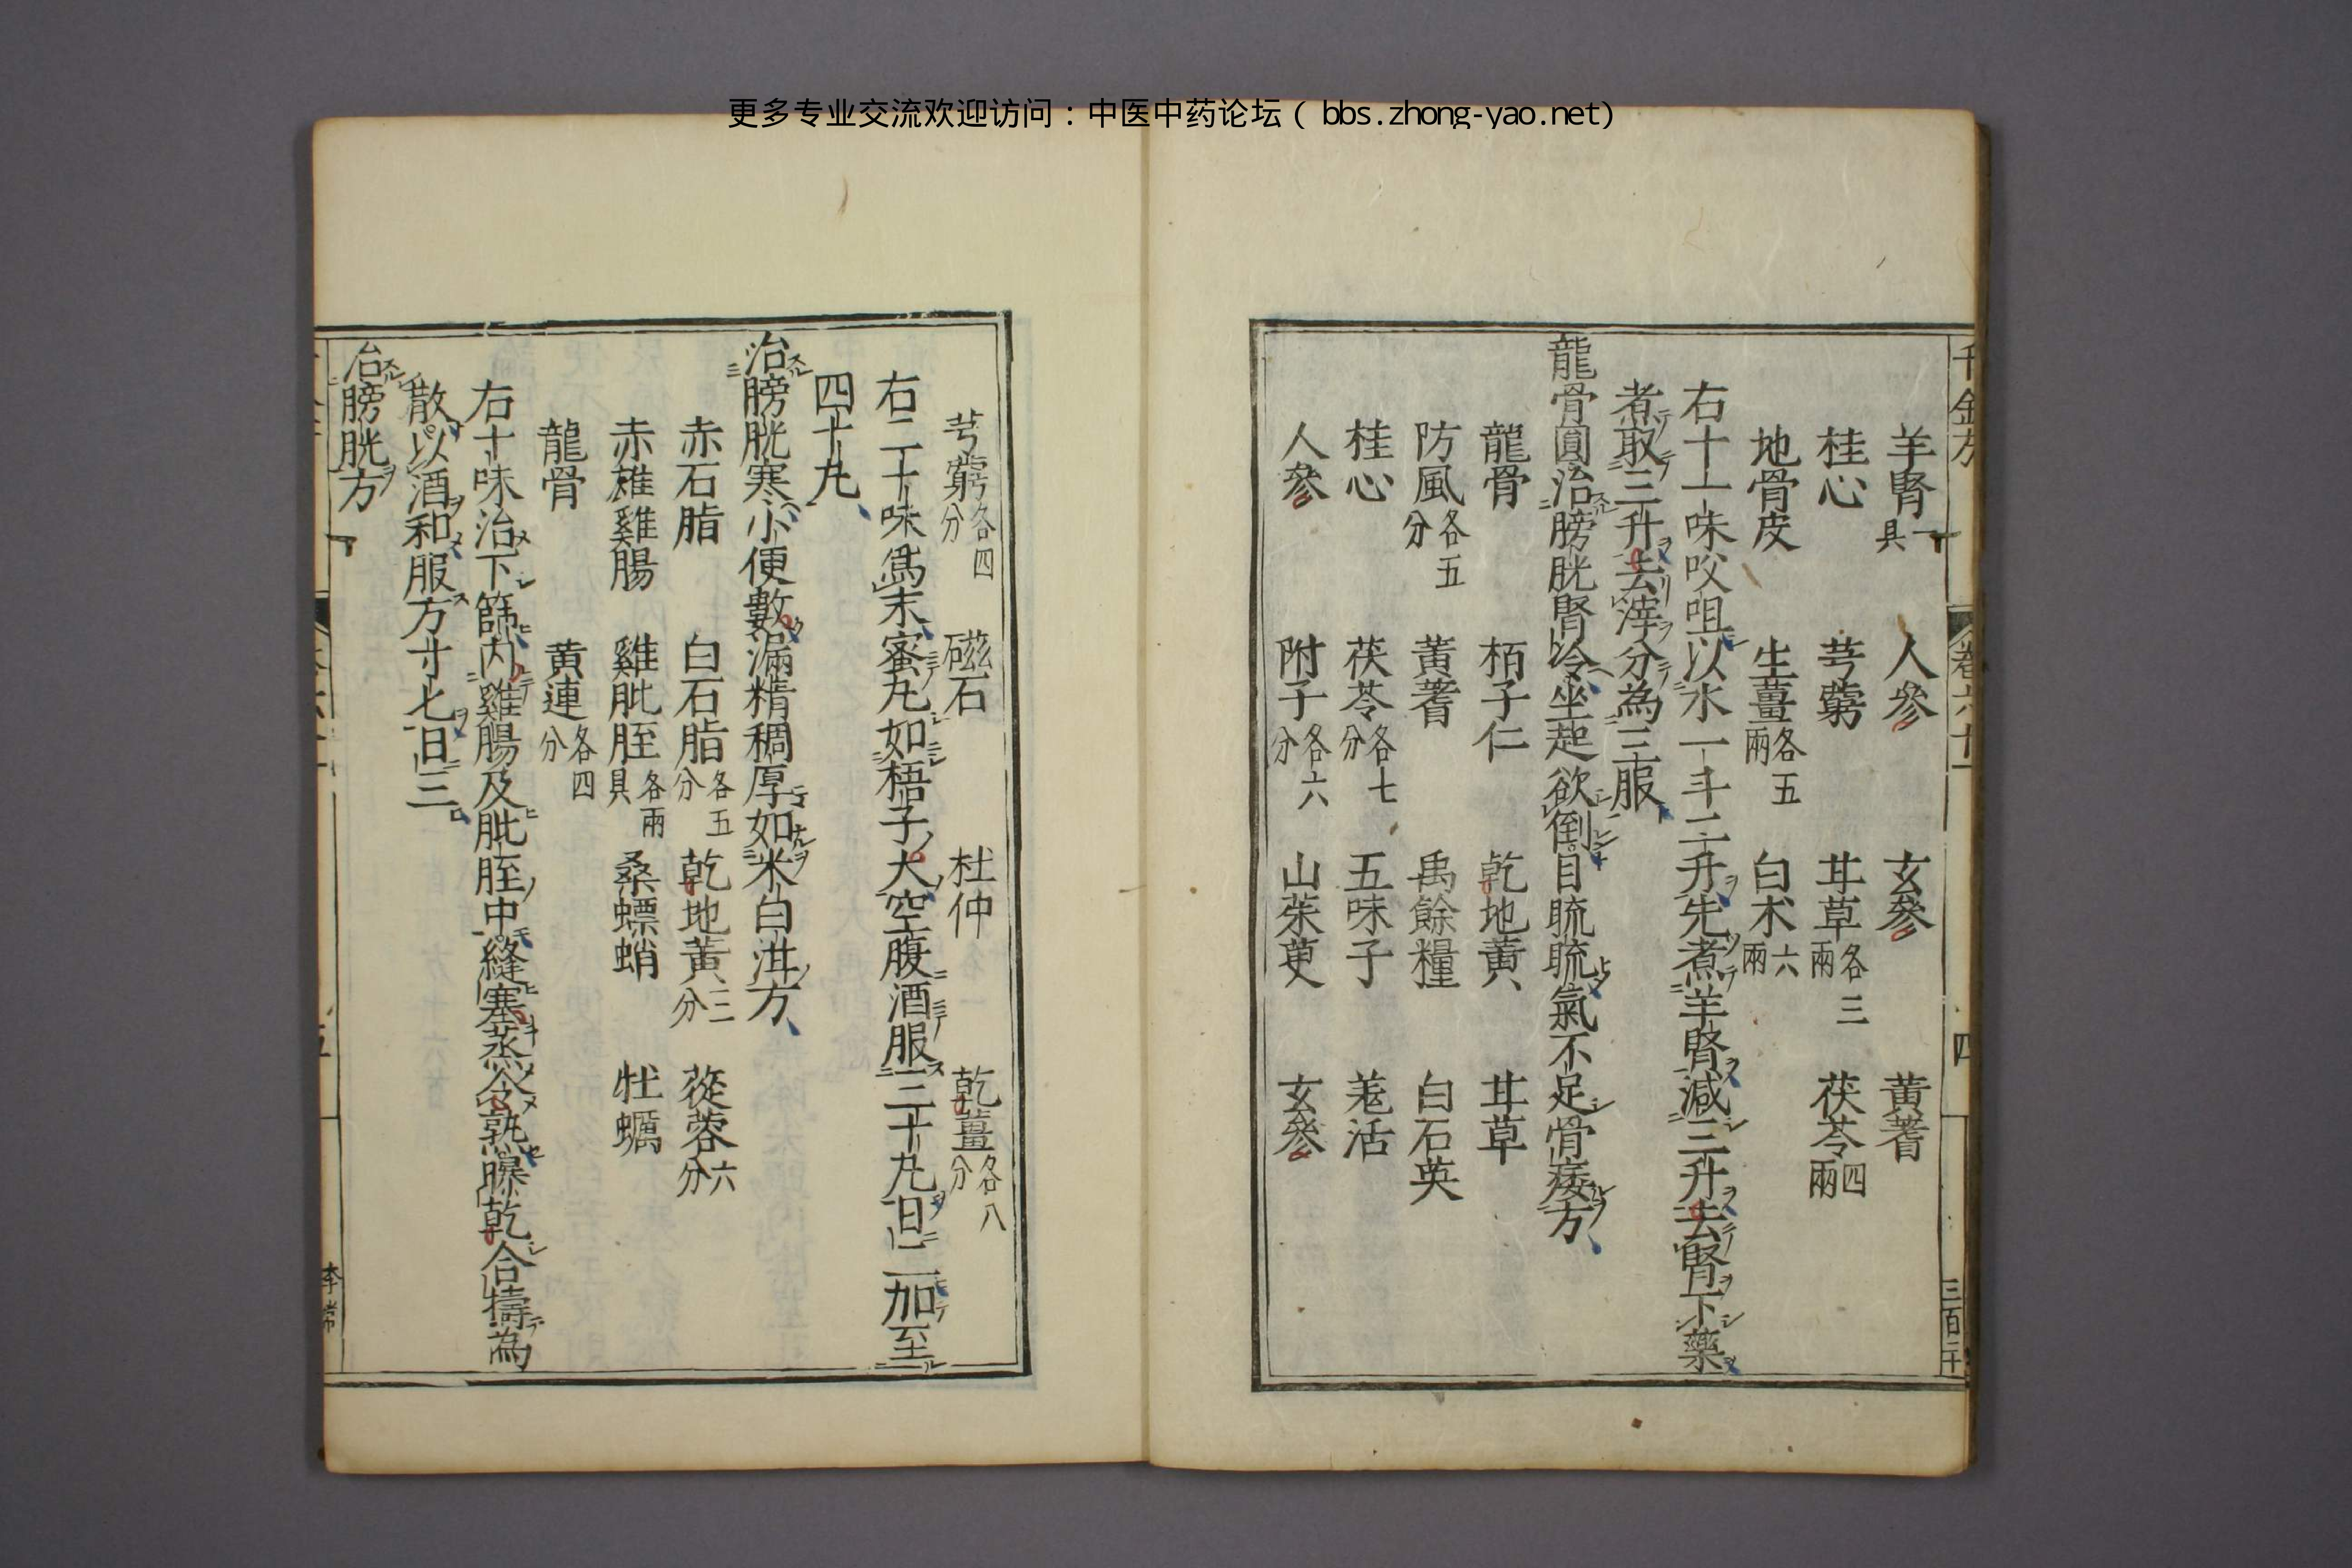 更多专业交流欢迎访问：中医中药论坛（bbs.zhong-yao.net）
千金方 卷六十一 四 三百二十
羊腎一具 人參 玄參 黃蓍
桂心 芎藭 甘草各三兩 茯苓四兩
地骨皮 生薑各五兩 白朮六兩
右十一味㕮咀以水一斗二升先煮羊腎減三升去腎下藥
煮取三升去滓分為三服
龍骨圓治膀胱腎冷坐起欲倒目䀮䀮氣不足骨痿方
龍骨 栢子仁 乾地黃 甘草
防風各五分 黃蓍 禹餘糧 白石英
桂心 茯苓各七分 五味子 羗活
人參 附子各六分 山茱萸 玄參
芎藭各四分 磁石 杜仲 乾薑各八分
右二十味爲末蜜丸如梧子大空腹酒服三十丸日二加至
四十丸
治膀胱寒小便數漏精稠厚如米白泔方
赤石脂 白石脂各五分 乾地黃三分 蓯蓉六分
赤雄雞腸 雞肶胵各兩具 桑螵蛸 牡蠣
龍骨 黃連各四分
右十味治下篩內雞腸及肶胵中縫塞蒸令熟曝乾合擣為
散以酒和服方寸匕日三
治膀胱方
五 李常